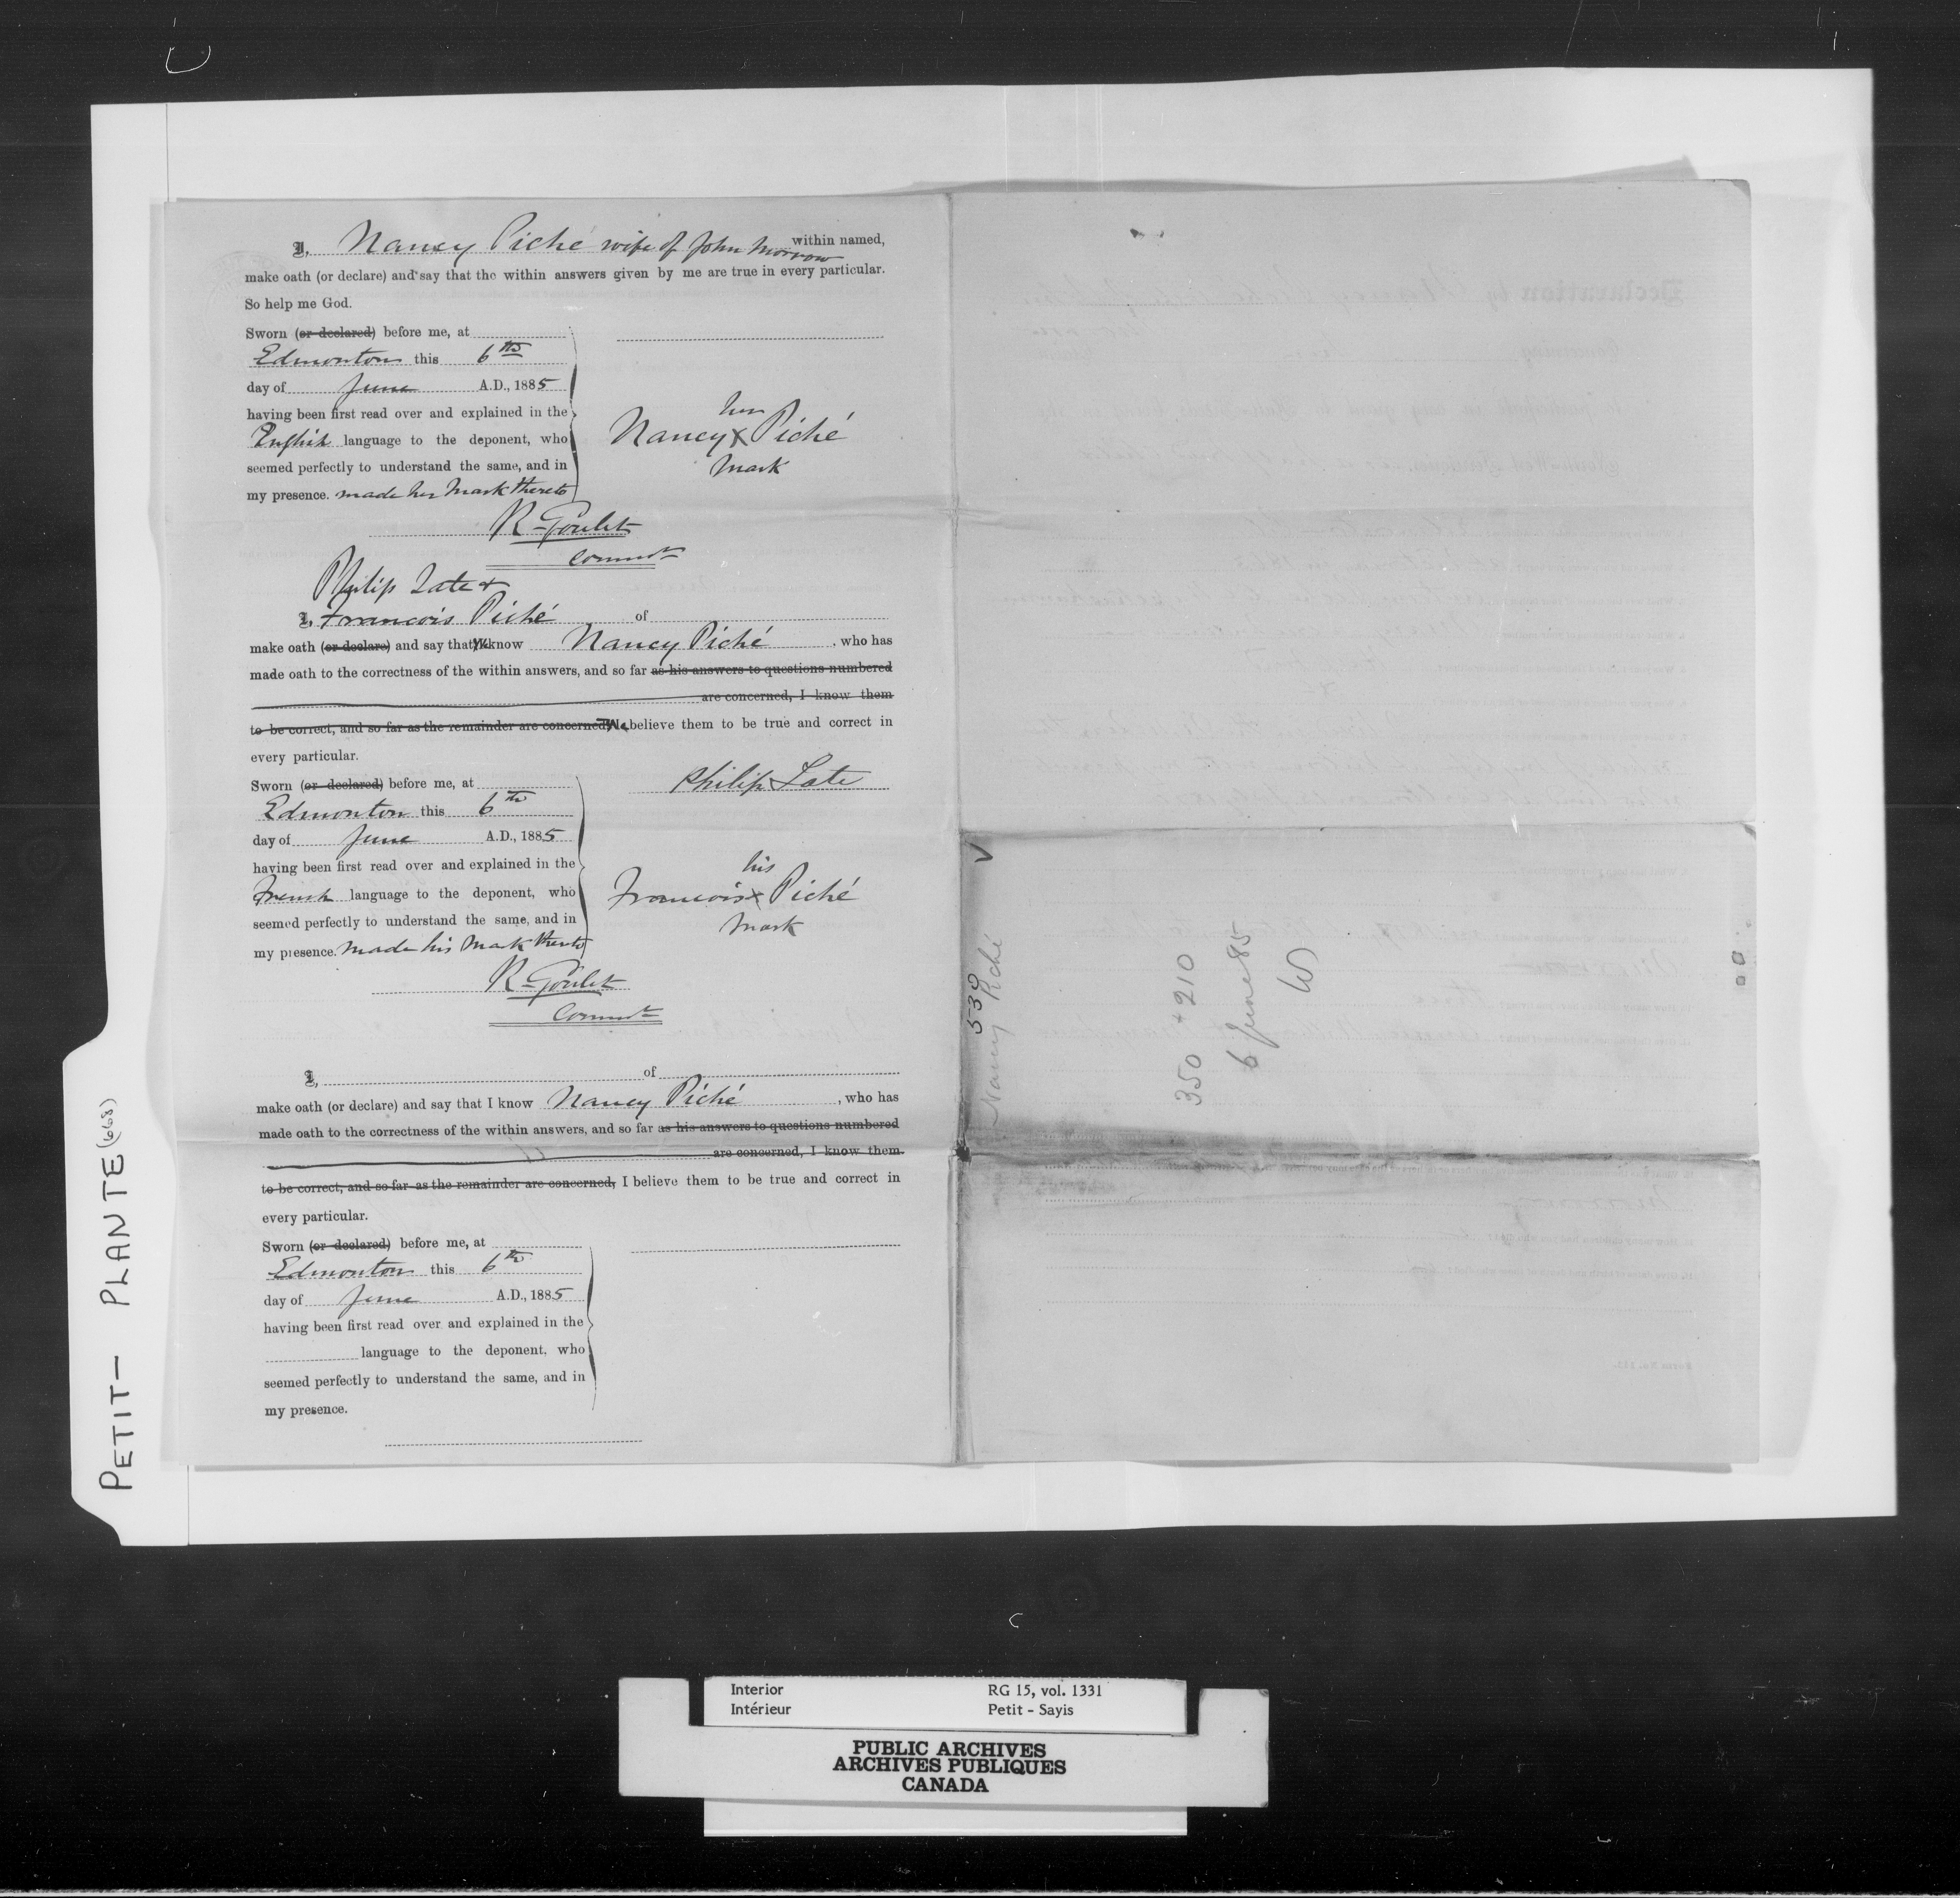 I, Nancy Piché wife of John Morrow within named,
make oath (or declare) and say that the within answers given by me are true in every particular.
So help me God.
Sworn (or declared) before me, at
Edmonton this 6th
day of June A.D., 1885
having been first read over and explained in the
English language to the deponent, who
seemed perfectly to understand the same, and in
my presence. made her mark thereto
her
Nancy X Piché
mark
R Goulet
Commr
Philip Late &
I, Francois Piché of
make oath (or declare) and say that We know Nancy Piché, who has
made oath to the correctness of the within answers, and so far as his answers to questions numbered
are concerned, I know them
to be correct, and so far as the remainder are concerned, We believe them to be true and correct in
every particular.
Sworn (or declared) before me, at
Edmonton this 6th
day of June A.D., 1885
having been first read over and explained in the
French language to the deponent, who
seemed perfectly to understand the same, and in
my presence. made his mark thereto
Philip Late
his
Francois X Piché
mark
R Goulet
Commr
I, of
make oath (or declare) and say that I know Nancy Piché, who has
made oath to the correctness of the within answers, and so far as his answers to questions numbered
are concerned, I know them
to be correct, and so far as the remainder are concerned, I believe them to be true and correct in
every particular.
Sworn (or declared) before me, at
Edmonton this 6th
day of June A.D., 1885
having been first read over and explained in the
language to the deponent, who
seemed perfectly to understand the same, and in
my presence.
530
Nancy Piché
350 + 210
6 June 85
PETIT - PLANTE (668)
Interior RG 15, vol. 1331
Intérieur Petit - Sayis
PUBLIC ARCHIVES
ARCHIVES PUBLIQUES
CANADA